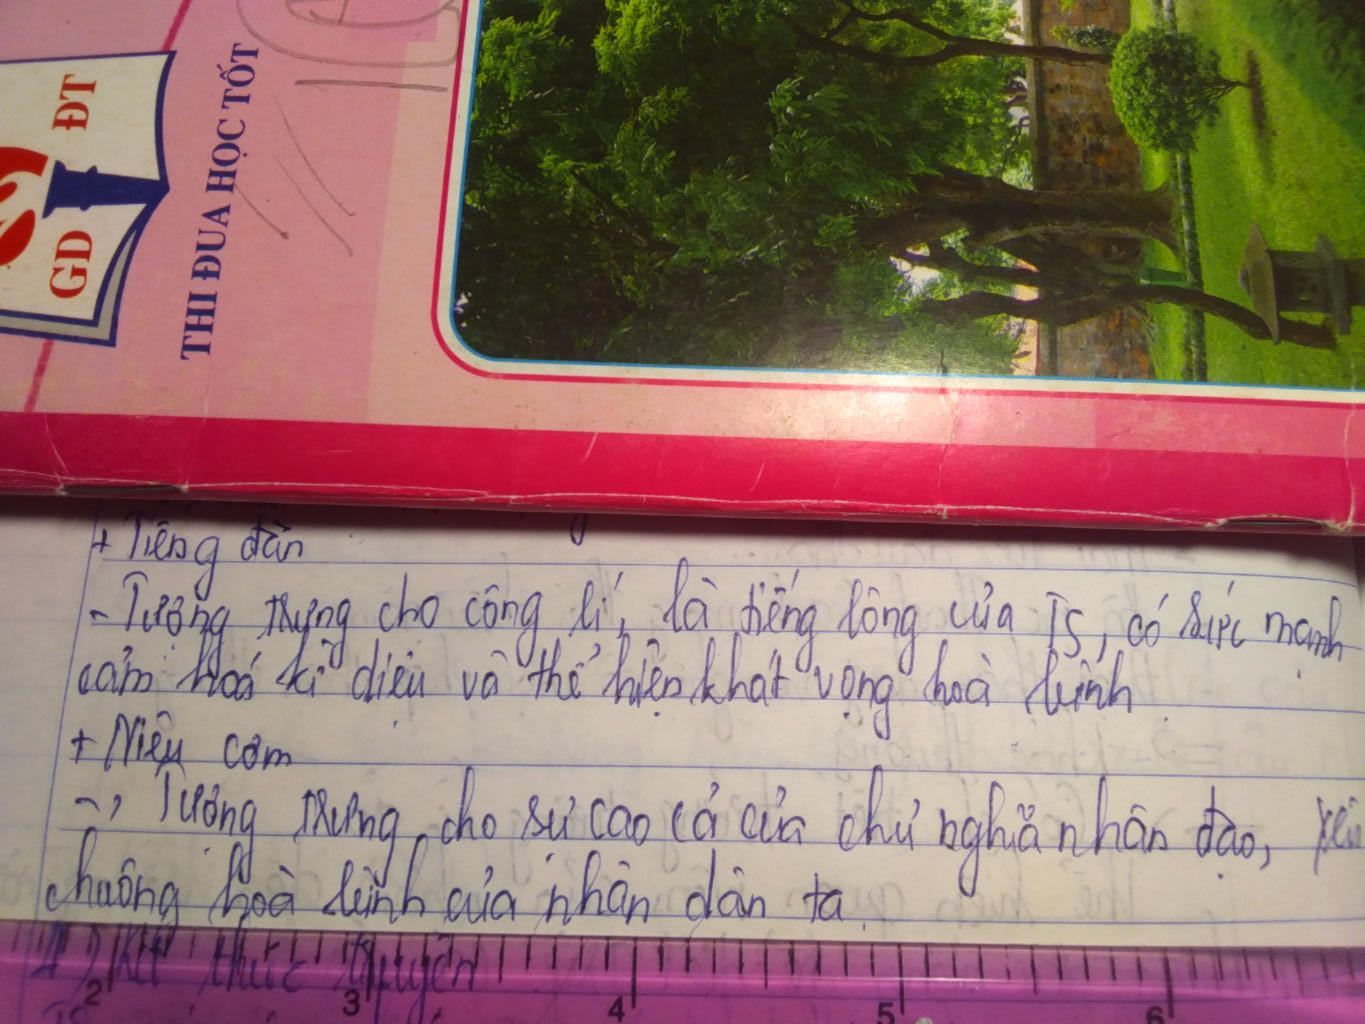 GD ĐT
THI ĐUA HỌC TỐT
+ Tiếng đàn
- Tượng trưng cho công lí, là tiếng lòng của TS, có sức mạnh
cảm hoá kì diệu và thể hiện khát vọng hoà bình
+ Niêu cơm
-, Tượng trưng cho sự cao cả của chủ nghĩa nhân đạo, yêu
chuông hoà bình của nhân dân ta
thúc truyện
2 3 4 5 6